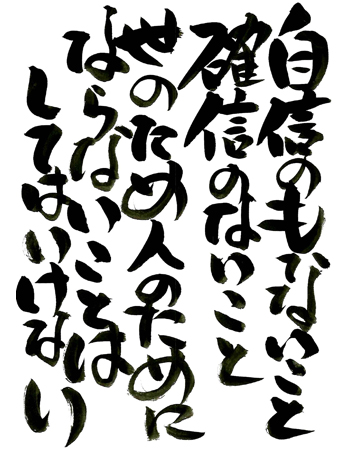 自信のもてないこと
確信のないこと
世のため人のために
ならないことは
してはいけない